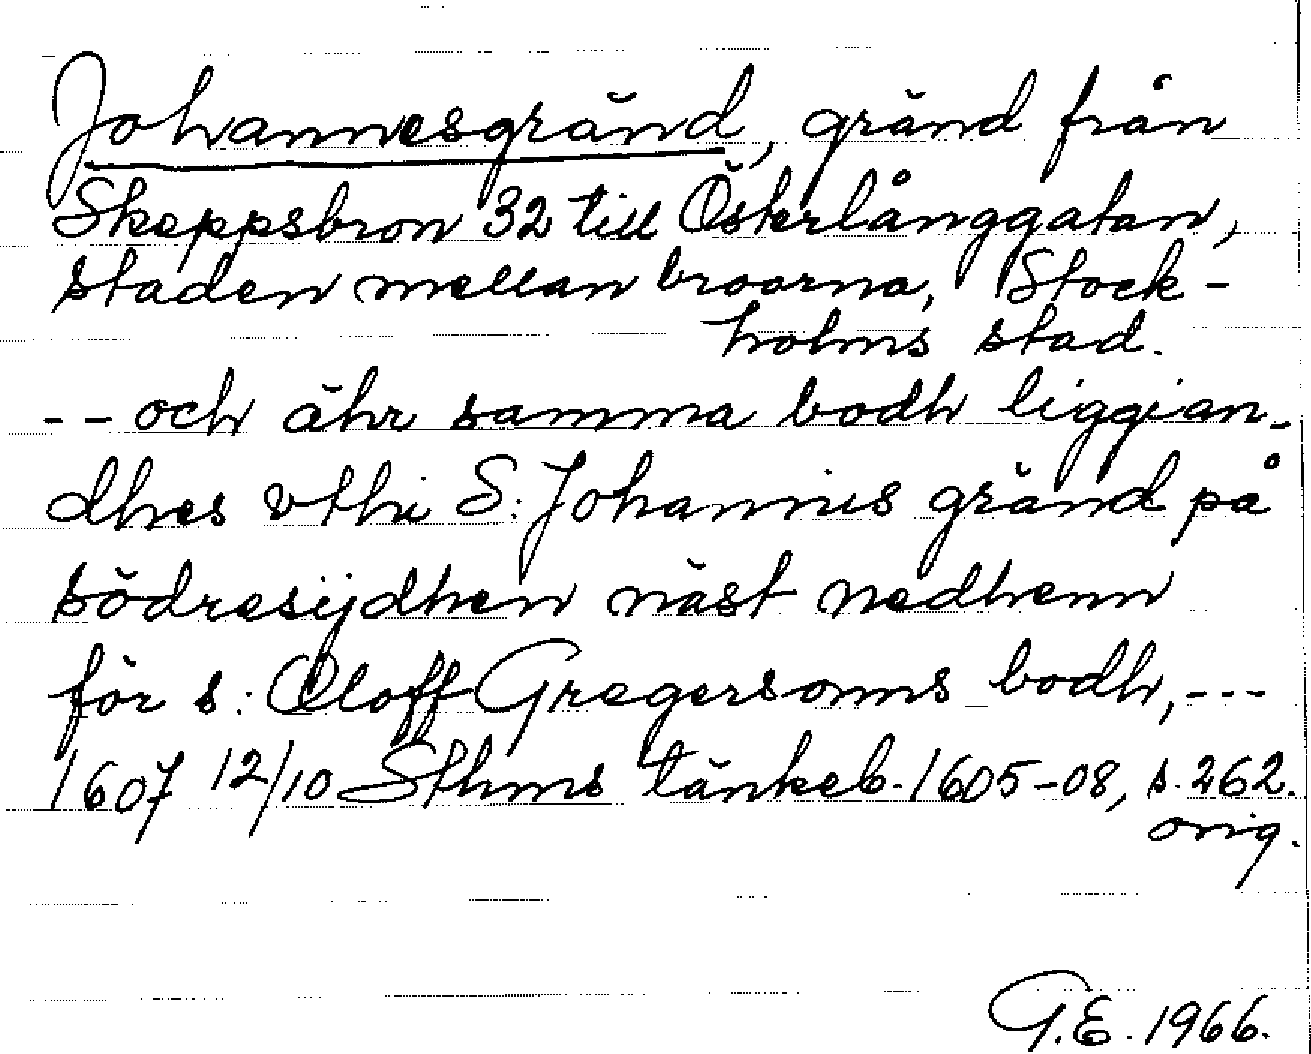 Johannesgränd, gränd från
Skeppsbron 32 till Österlånggatan,
staden mellan broarna, Stock-
holms stad.
-- och ähr samma bodh liggian-
dhes vthi S: Johannis gränd på
södresijdhen näst nedhenn
för s: Oloff Gregersonns bodh, ---
1607 12/10 Sthms tänkeb. 1605-08, s. 262.
orig.
G.E. 1966.